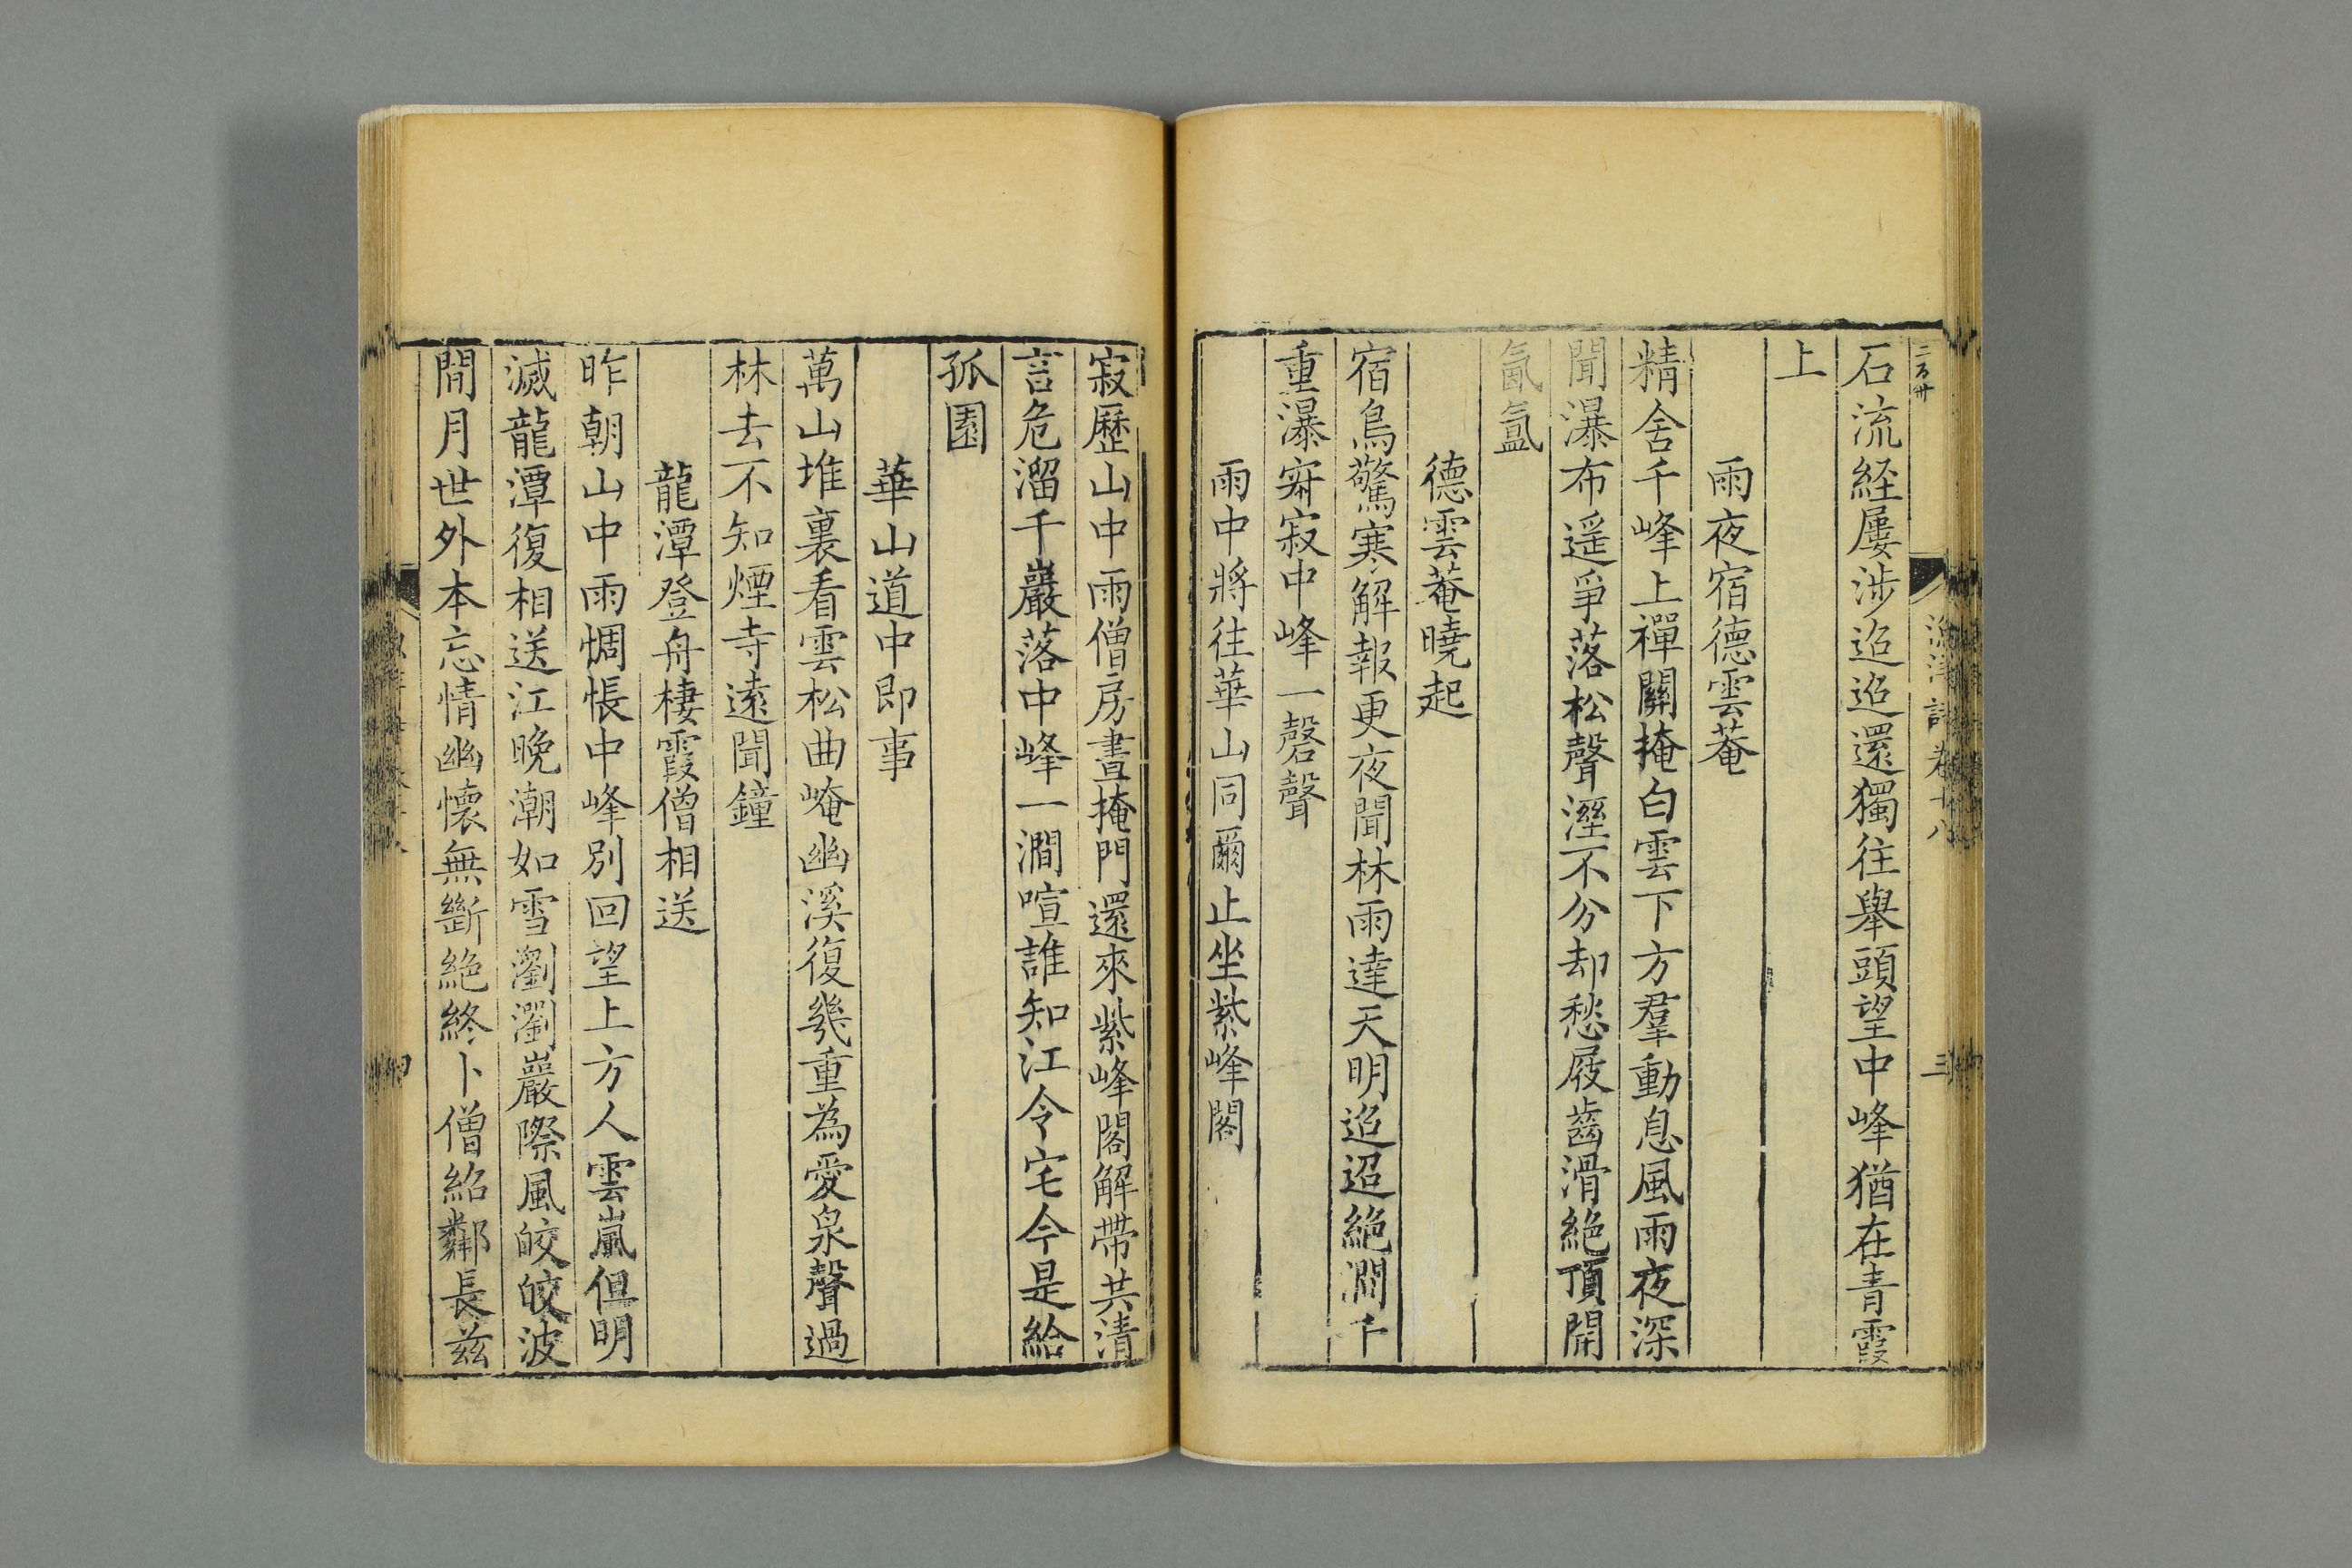 二百廿
漁洋詩卷十八
三
石流経屢涉迢迢還獨往舉頭望中峰猶在青霞
上
雨夜宿德雲菴
精舍千峰上禪關掩白雲下方羣動息風雨夜深
聞瀑布遥爭落松聲溼不分却愁屐齒滑絶頂開
氤氲
德雲菴曉起
宿鳥驚寒解報更夜聞林雨達天明迢迢絶澗千
重瀑㝥寂中峰一磬聲
雨中將往華山同爾止坐紫峰閣
寂歷山中雨僧房晝掩門還來紫峰閣解帶共清
言危溜千巖落中峰一澗喧誰知江令宅今是給
孤園
華山道中即事
萬山堆裏看雲松曲崦幽溪復幾重為愛泉聲過
林去不知煙寺遠聞鐘
龍潭登舟棲霞僧相送
昨朝山中雨惆悵中峰別回望上方人雲嵐但明
滅龍潭復相送江晚潮如雪瀏瀏巖際風皎皎波
間月世外本忘情幽懷無斷絶終卜僧紹鄰長兹